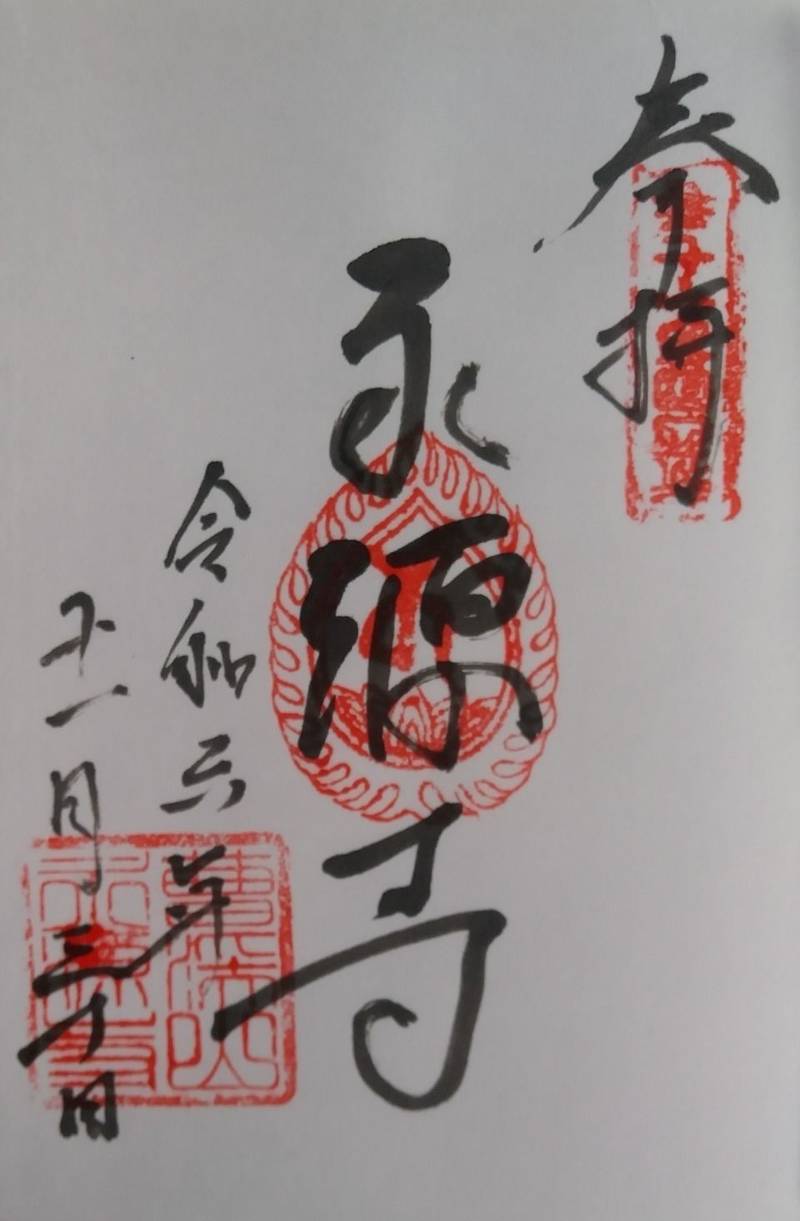 奉拝
永源寺
令和六年
十一月三十日